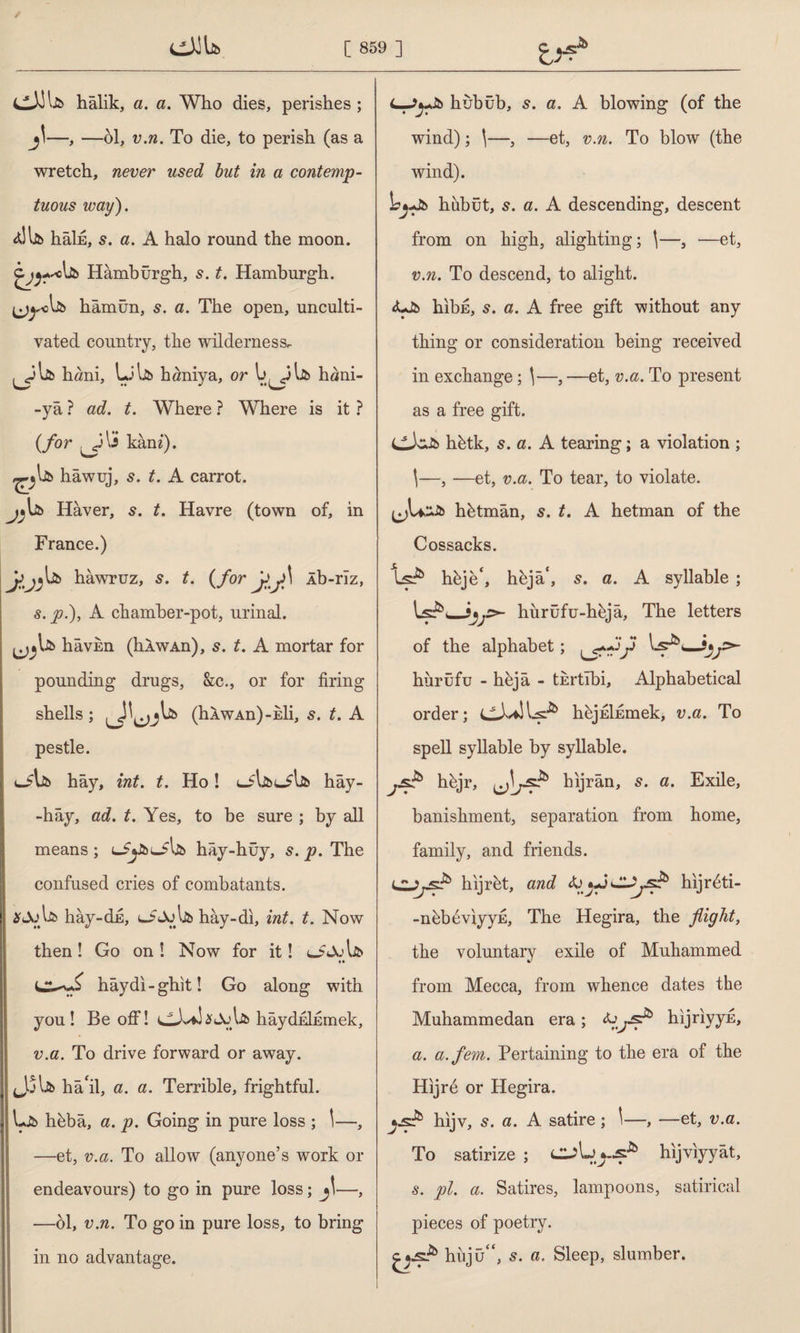 هالك [ 859 ] هجوع
هالك hālik, a. a. Who dies, perishes ;
او—, —ŏl, v.n. To die, to perish (as a
wretch, never used but in a contemp-
tuous way).
هاله hālᴇ, s. a. A halo round the moon.
هامبورغ Hàmbūrgh, s. t. Hamburgh.
هامون hāmūn, s. a. The open, unculti-
vated country, the wilderness.
هانی hàni, هانیا hàniya, or هانی یا hàni-
-yā? ad. t. Where? Where is it?
(for قانی kàni).
هاوج hāwuj, s. t. A carrot.
هاور Hàver, s. t. Havre (town of, in
France.)
هاوروز hàwrᴜz, s. t. (for آبریز āb-rīz,
s. p.), A chamber-pot, urinal.
هاون hāvᴇn (hᴀ̀wᴀn), s. t. A mortar for
pounding drugs, &c., or for firing
shells ; هاون الی (hᴀ̀wᴀn)-ᴇli, s. t. A
pestle.
های hāy, int. t. Ho! های های hāy-
-hāy, ad. t. Yes, to be sure ; by all
means ; های هوی hāy-hūy, s. p. The
confused cries of combatants.
های ده hày-dᴇ, های دی hày-dì, int. t. Now
then! Go on! Now for it! های دی
كیت hāydì-ghìt! Go along with
you! Be off! هایده لمك hāydᴇlᴇmek,
v.a. To drive forward or away.
هائل hāʻil, a. a. Terrible, frightful.
هبا hèbā, a. p. Going in pure loss ; ا—,
—et, v.a. To allow (anyone's work or
endeavours) to go in pure loss; او—,
—ŏl, v.n. To go in pure loss, to bring
in no advantage.
هبوب hùbūb, s. a. A blowing (of the
wind); ا—, —et, v.n. To blow (the
wind).
هبوط hùbūt, s. a. A descending, descent
from on high, alighting; ا—, —et,
v.n. To descend, to alight.
هبه hìbᴇ, s. a. A free gift without any
thing or consideration being received
in exchange ; ا—, —et, v.a. To present
as a free gift.
هتك hètk, s. a. A tearing; a violation ;
ا—, —et, v.a. To tear, to violate.
هتمان hètmān, s. t. A hetman of the
Cossacks.
هجا hèjèʻ, hèjāʻ, s. a. A syllable ;
حروف هجا hùrūfu-hèjā, The letters
of the alphabet ; حروف هجا ترتیبی
hùrūfu - hèjā - tᴇrtībi, Alphabetical
order; هجالمك hèjᴇlᴇmek, v.a. To
spell syllable by syllable.
هجر hèjr, هجران hìjrān, s. a. Exile,
banishment, separation from home,
family, and friends.
هجرت hìjrèt, and هجرت نبویه hìjréti-
-nèbévìyyᴇ, The Hegira, the flight,
the voluntary exile of Muhammed
from Mecca, from whence dates the
Muhammedan era; هجریه hìjrìyyᴇ,
a. a. fem. Pertaining to the era of the
Hìjré or Hegira.
هجو hìjv, s. a. A satire ; ا—, —et, v.a.
To satirize ; هجویات hìjvìyyāt,
s. pl. a. Satires, lampoons, satirical
pieces of poetry.
هجوع hùjūʻʻ, s. a. Sleep, slumber.